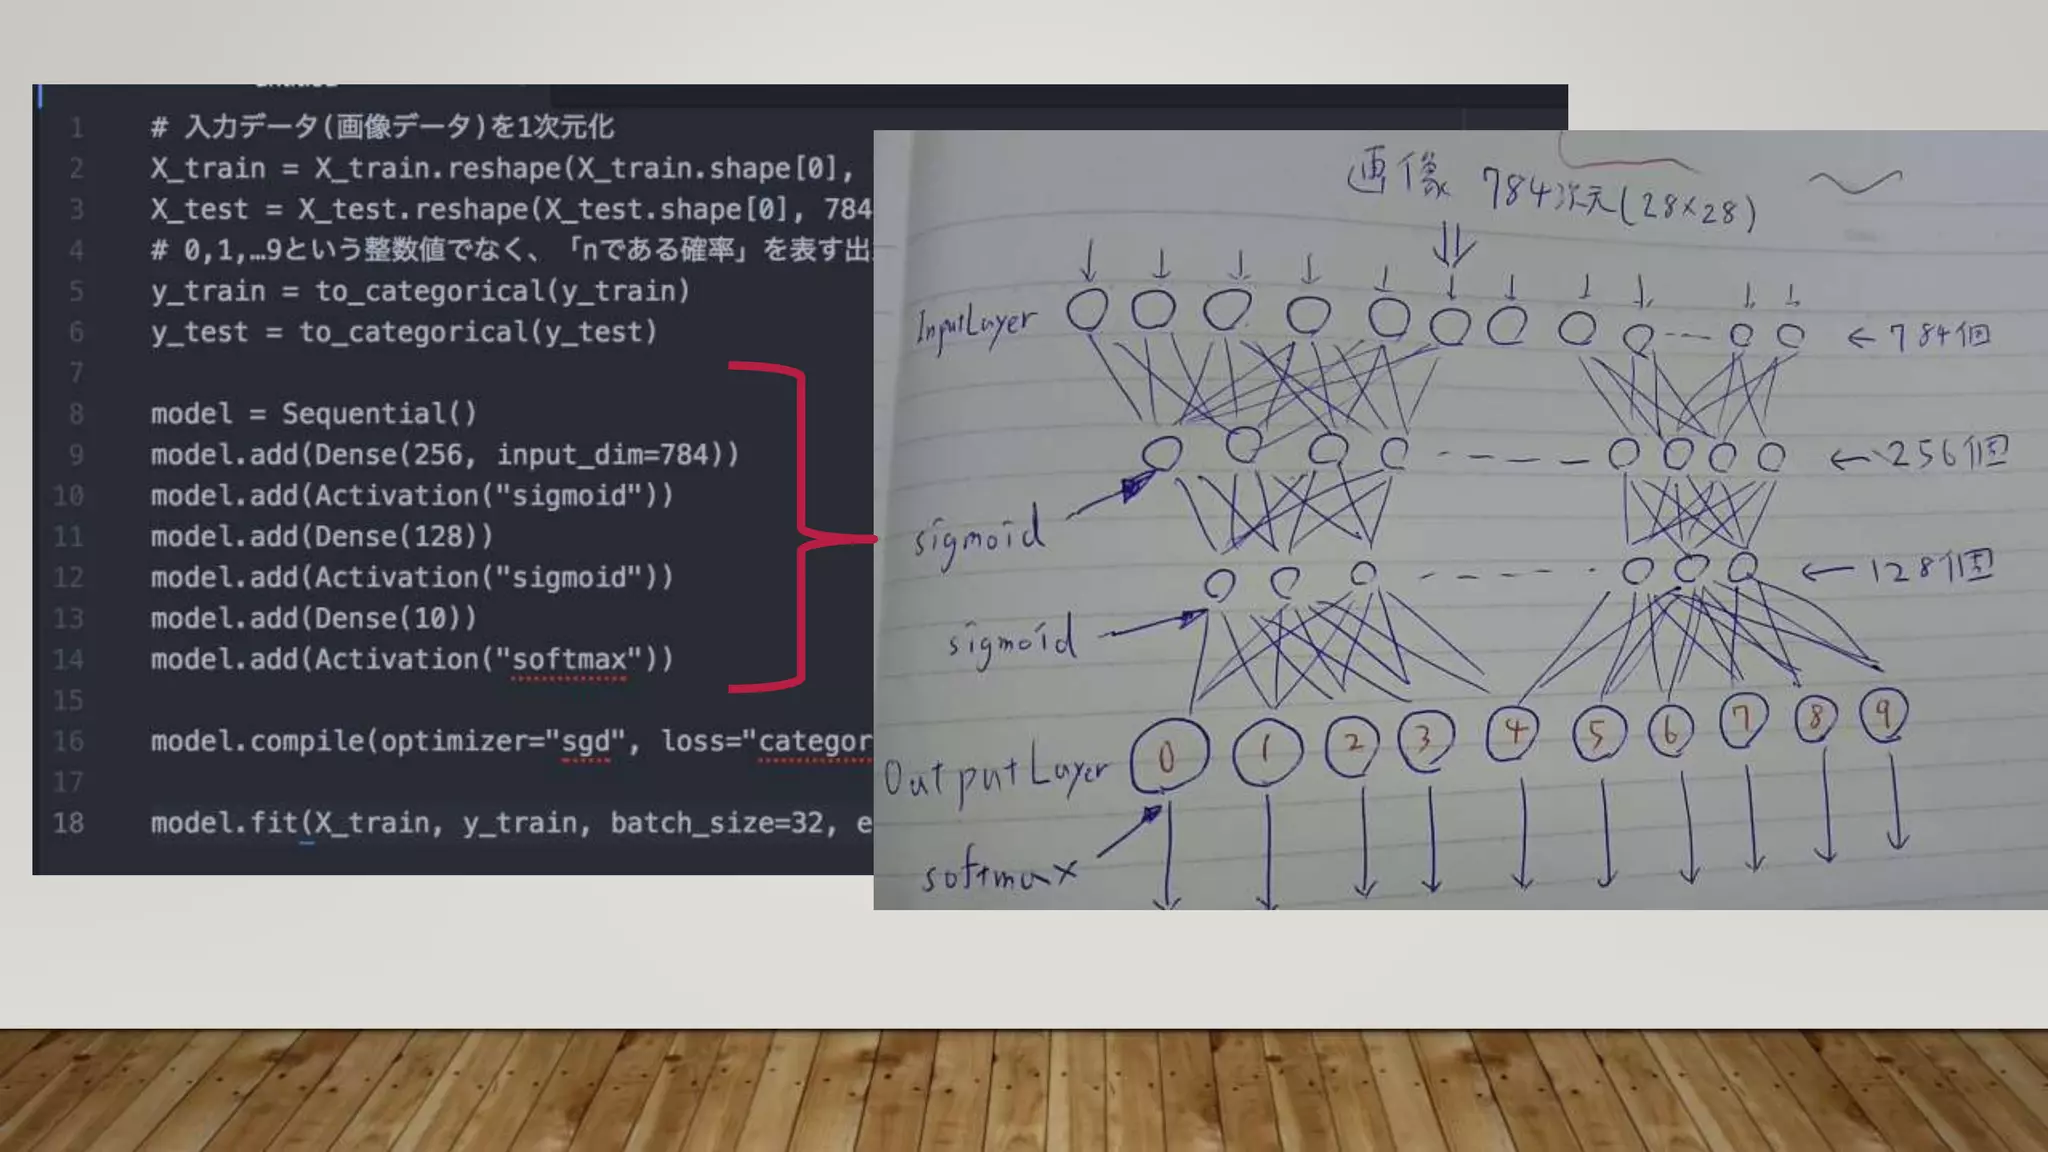 1 # 入力データ(画像データ)を1次元化
2 X_train = X_train.reshape(X_train.shape[0],
3 X_test = X_test.reshape(X_test.shape[0], 784
4 # 0,1,…9という整数値でなく、「nである確率」を表す出
5 y_train = to_categorical(y_train)
6 y_test = to_categorical(y_test)
7
8 model = Sequential()
9 model.add(Dense(256, input_dim=784))
10 model.add(Activation("sigmoid"))
11 model.add(Dense(128))
12 model.add(Activation("sigmoid"))
13 model.add(Dense(10))
14 model.add(Activation("softmax"))
15
16 model.compile(optimizer="sgd", loss="categor
17
18 model.fit(X_train, y_train, batch_size=32, e
画像 784次元(28×28)
InputLayer
←784個
←256個
sigmoid
←128個
sigmoid
OutputLayer 0 1 2 3 4 5 6 7 8 9
softmax